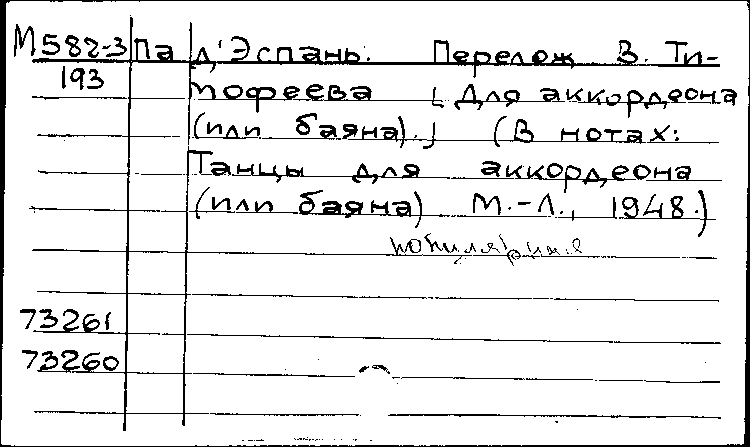 М582-3 Па д'Эспань. Перелож В. Ти-
193 мофеева [Для аккордеона
(или баяна).] (В нотах:
Танцы для аккордеона
(или баяна) М.-Л., 1948.)
популярные
73261
73260